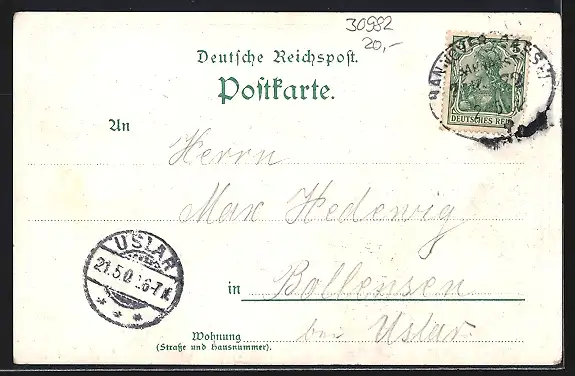 30982
20,-
Deutsche Reichspost.
Postkarte.
HANNOVER CASSEL
DEUTSCHES REI
An
Herrn
Max Hedewig
USLAR
21.5.0
6-7 N.
in Bollensen
bei Uslar.
Wohnung
(Straße und Hausnummer).